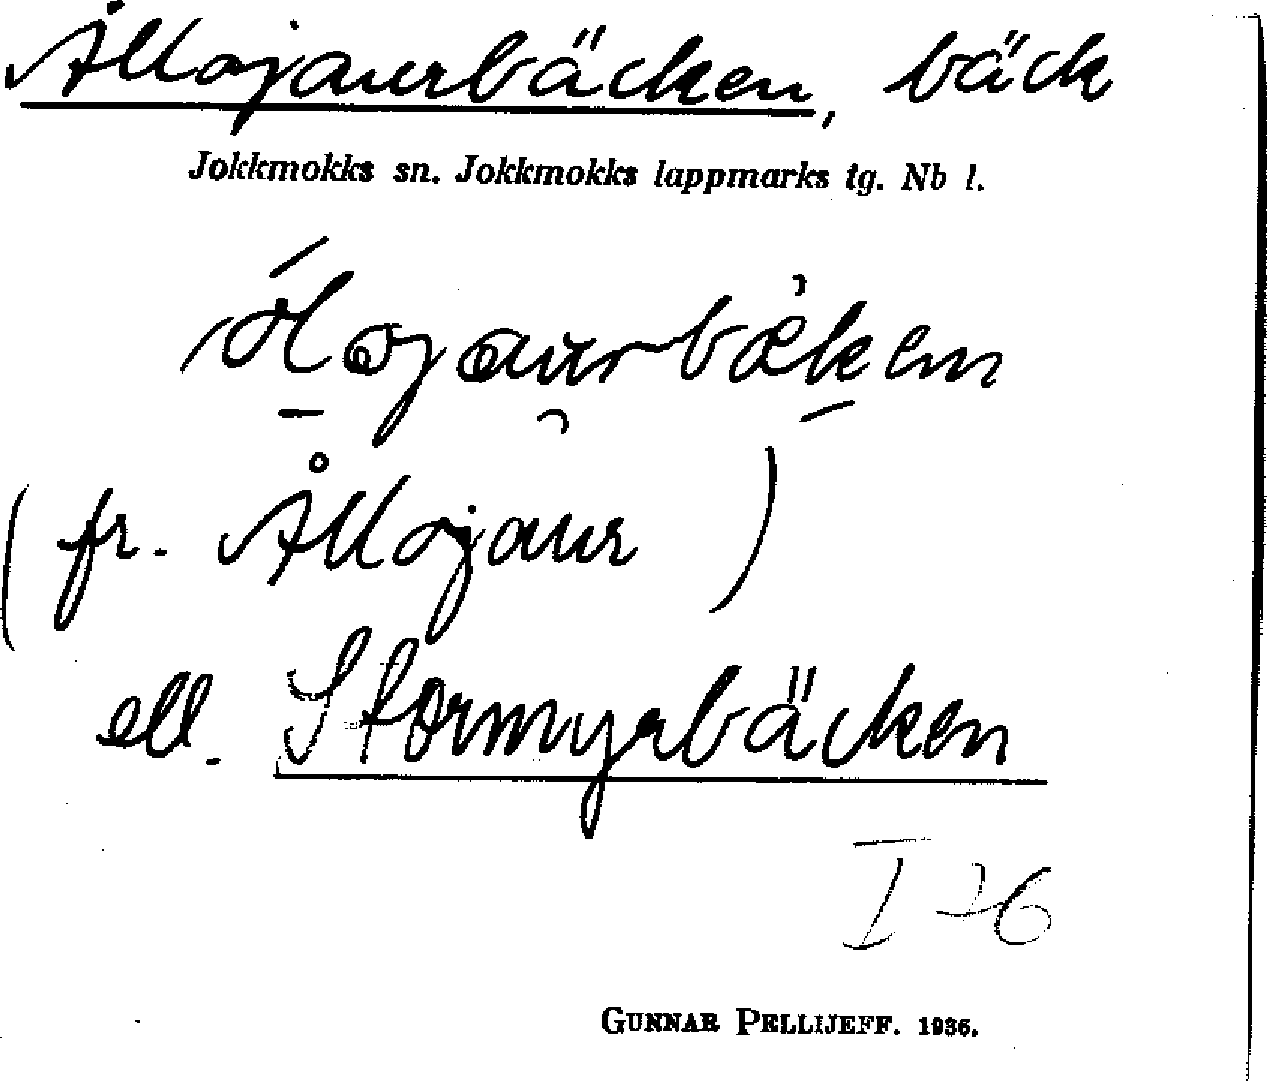 Ållojaurbäcken, bäck
Jokkmokks sn. Jokkmokks lappmarks tg. Nb l.
(fr. Ållojaur)
ell. Stormyrbäcken
GUNNAR PELLIJEFF. 1936.